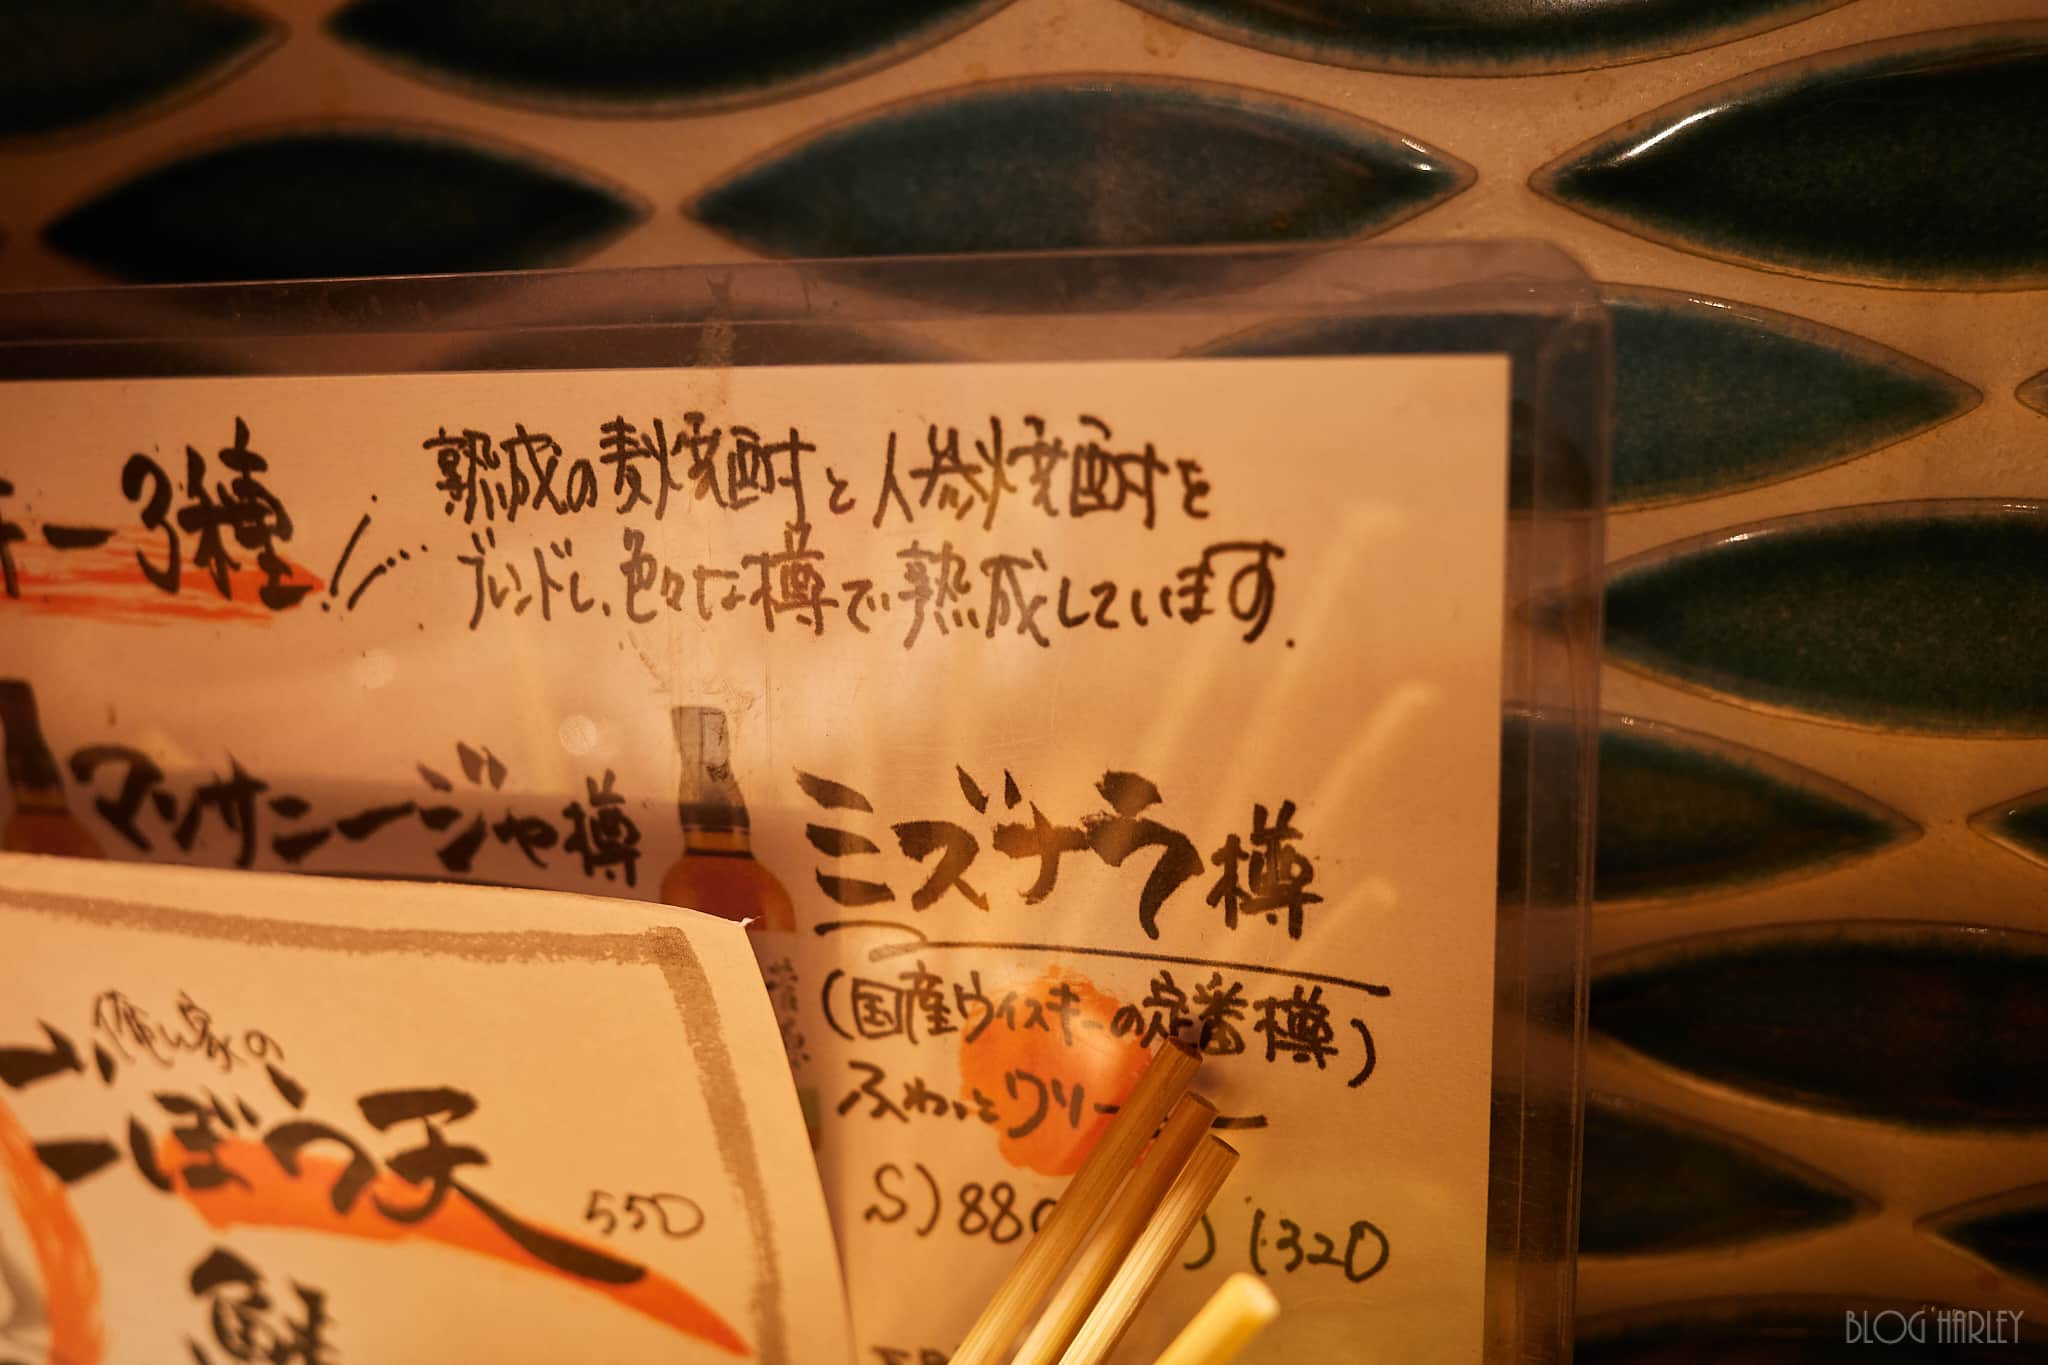 キー3種!!…
熟成の麦焼酎と人参焼酎を
ブレンドし、色々な樽で熟成しています.
マンサニージャ樽
ミズナラ樽
(国産ウイスキーの定番樽)
ふわっとウッ
S)880 ) 1320
家の
ごぼう天
550
BLOG HARLEY